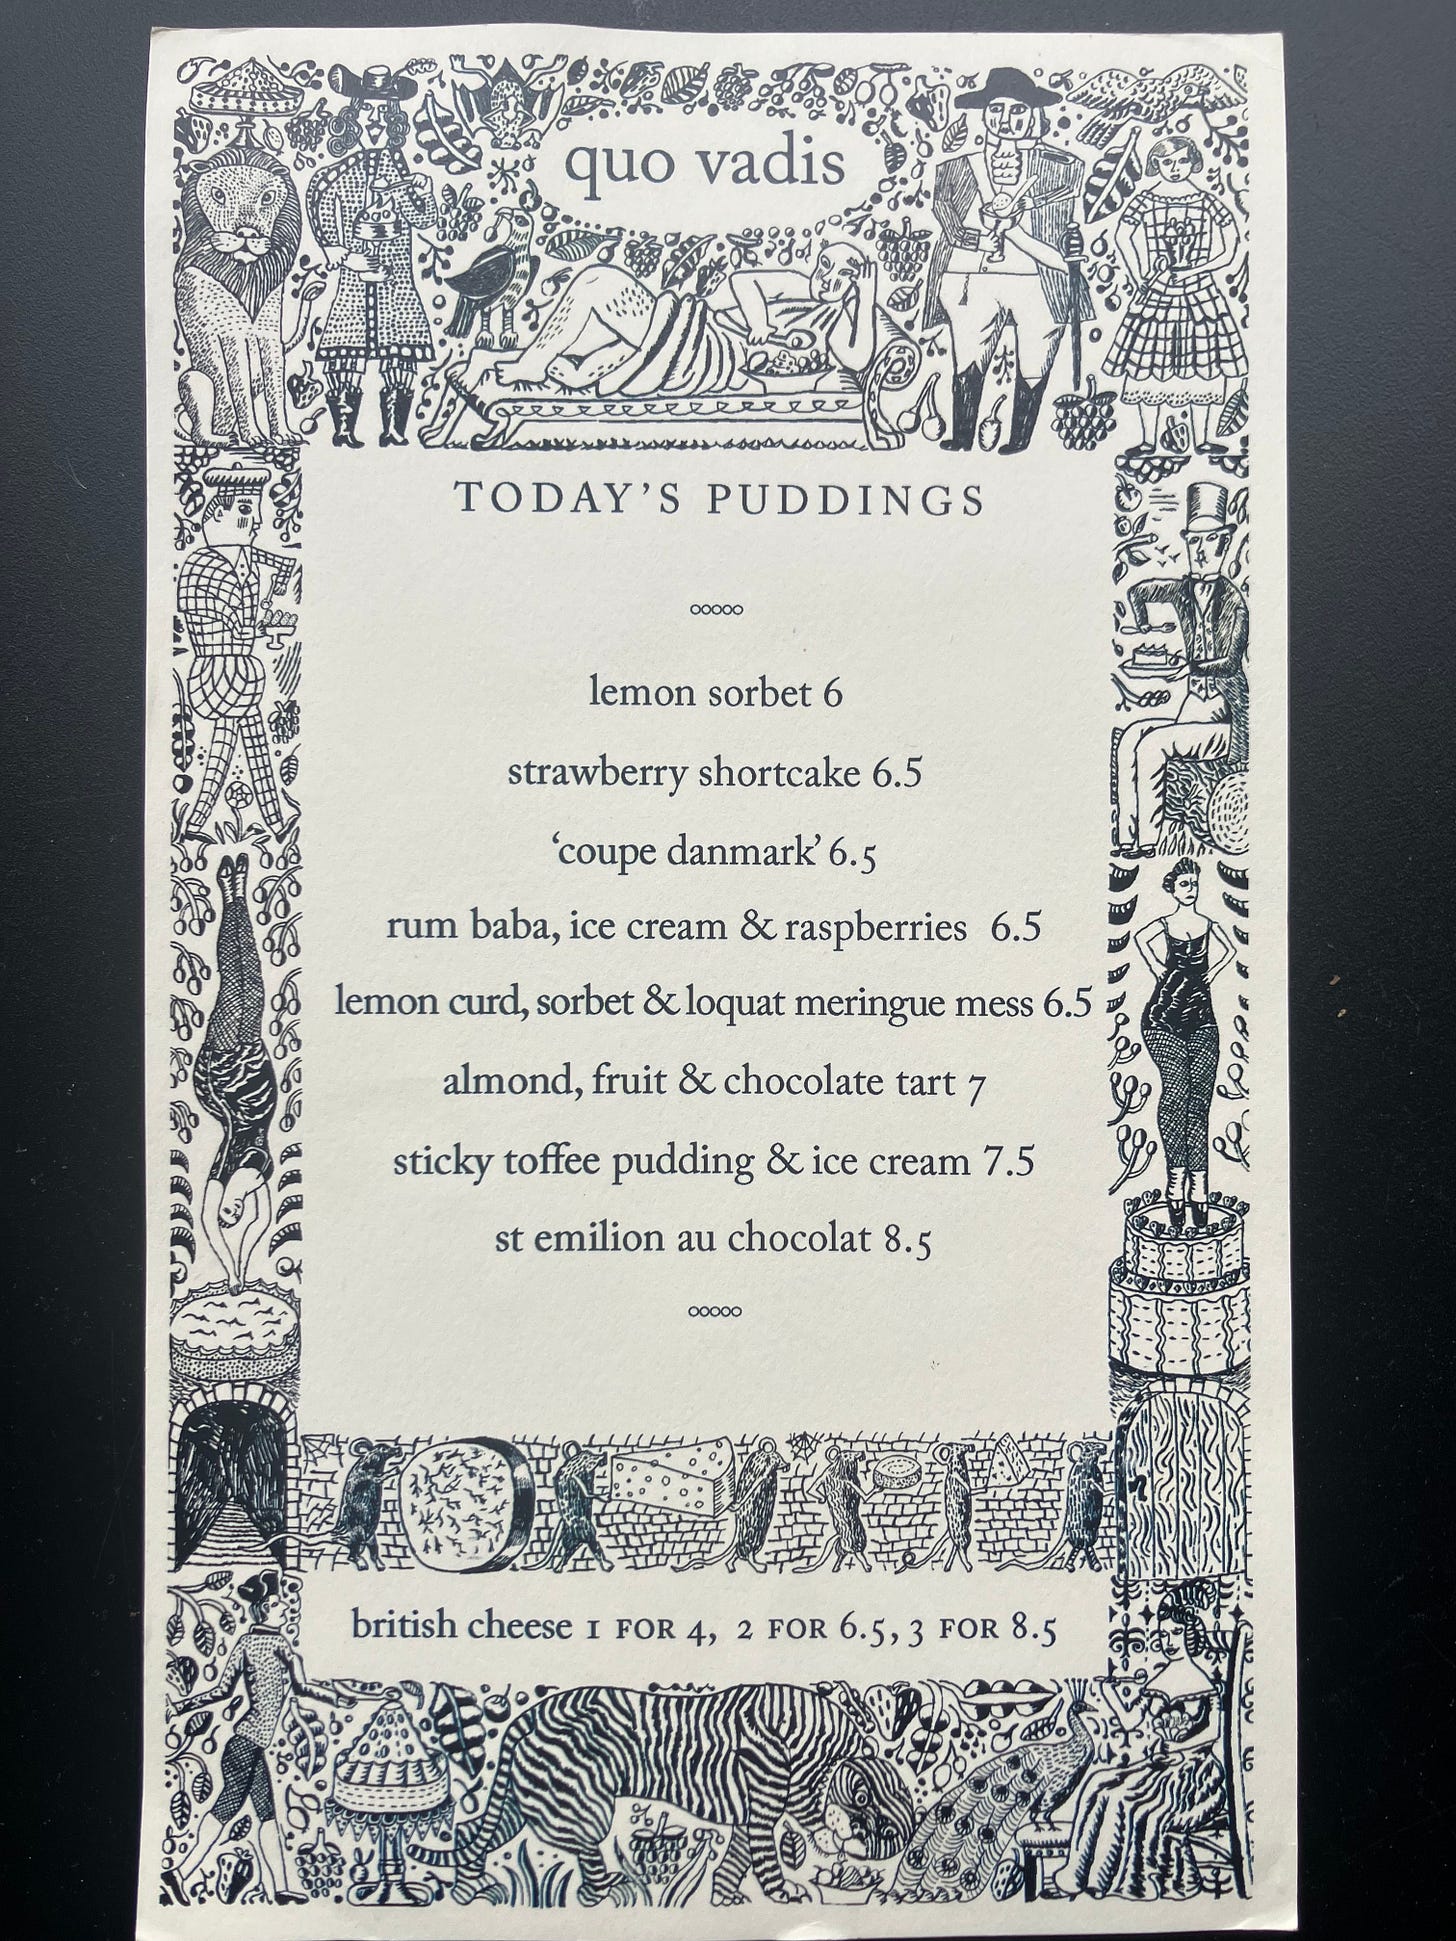 quo vadis
TODAY'S PUDDINGS
lemon sorbet 6
strawberry shortcake 6.5
‘coupe danmark’ 6.5
rum baba, ice cream & raspberries 6.5
lemon curd, sorbet & loquat meringue mess 6.5
almond, fruit & chocolate tart 7
sticky toffee pudding & ice cream 7.5
st emilion au chocolat 8.5
british cheese 1 FOR 4, 2 FOR 6.5, 3 FOR 8.5